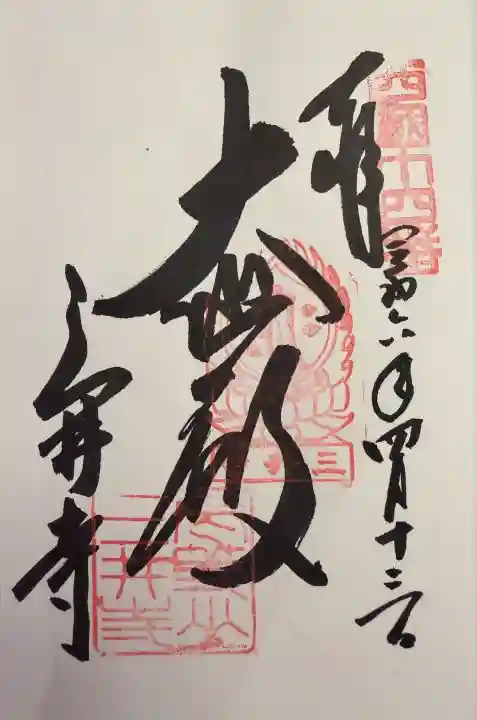 西国十四番
奉拝
令和六年四月十三日
大悲殿
三井寺
三井寺